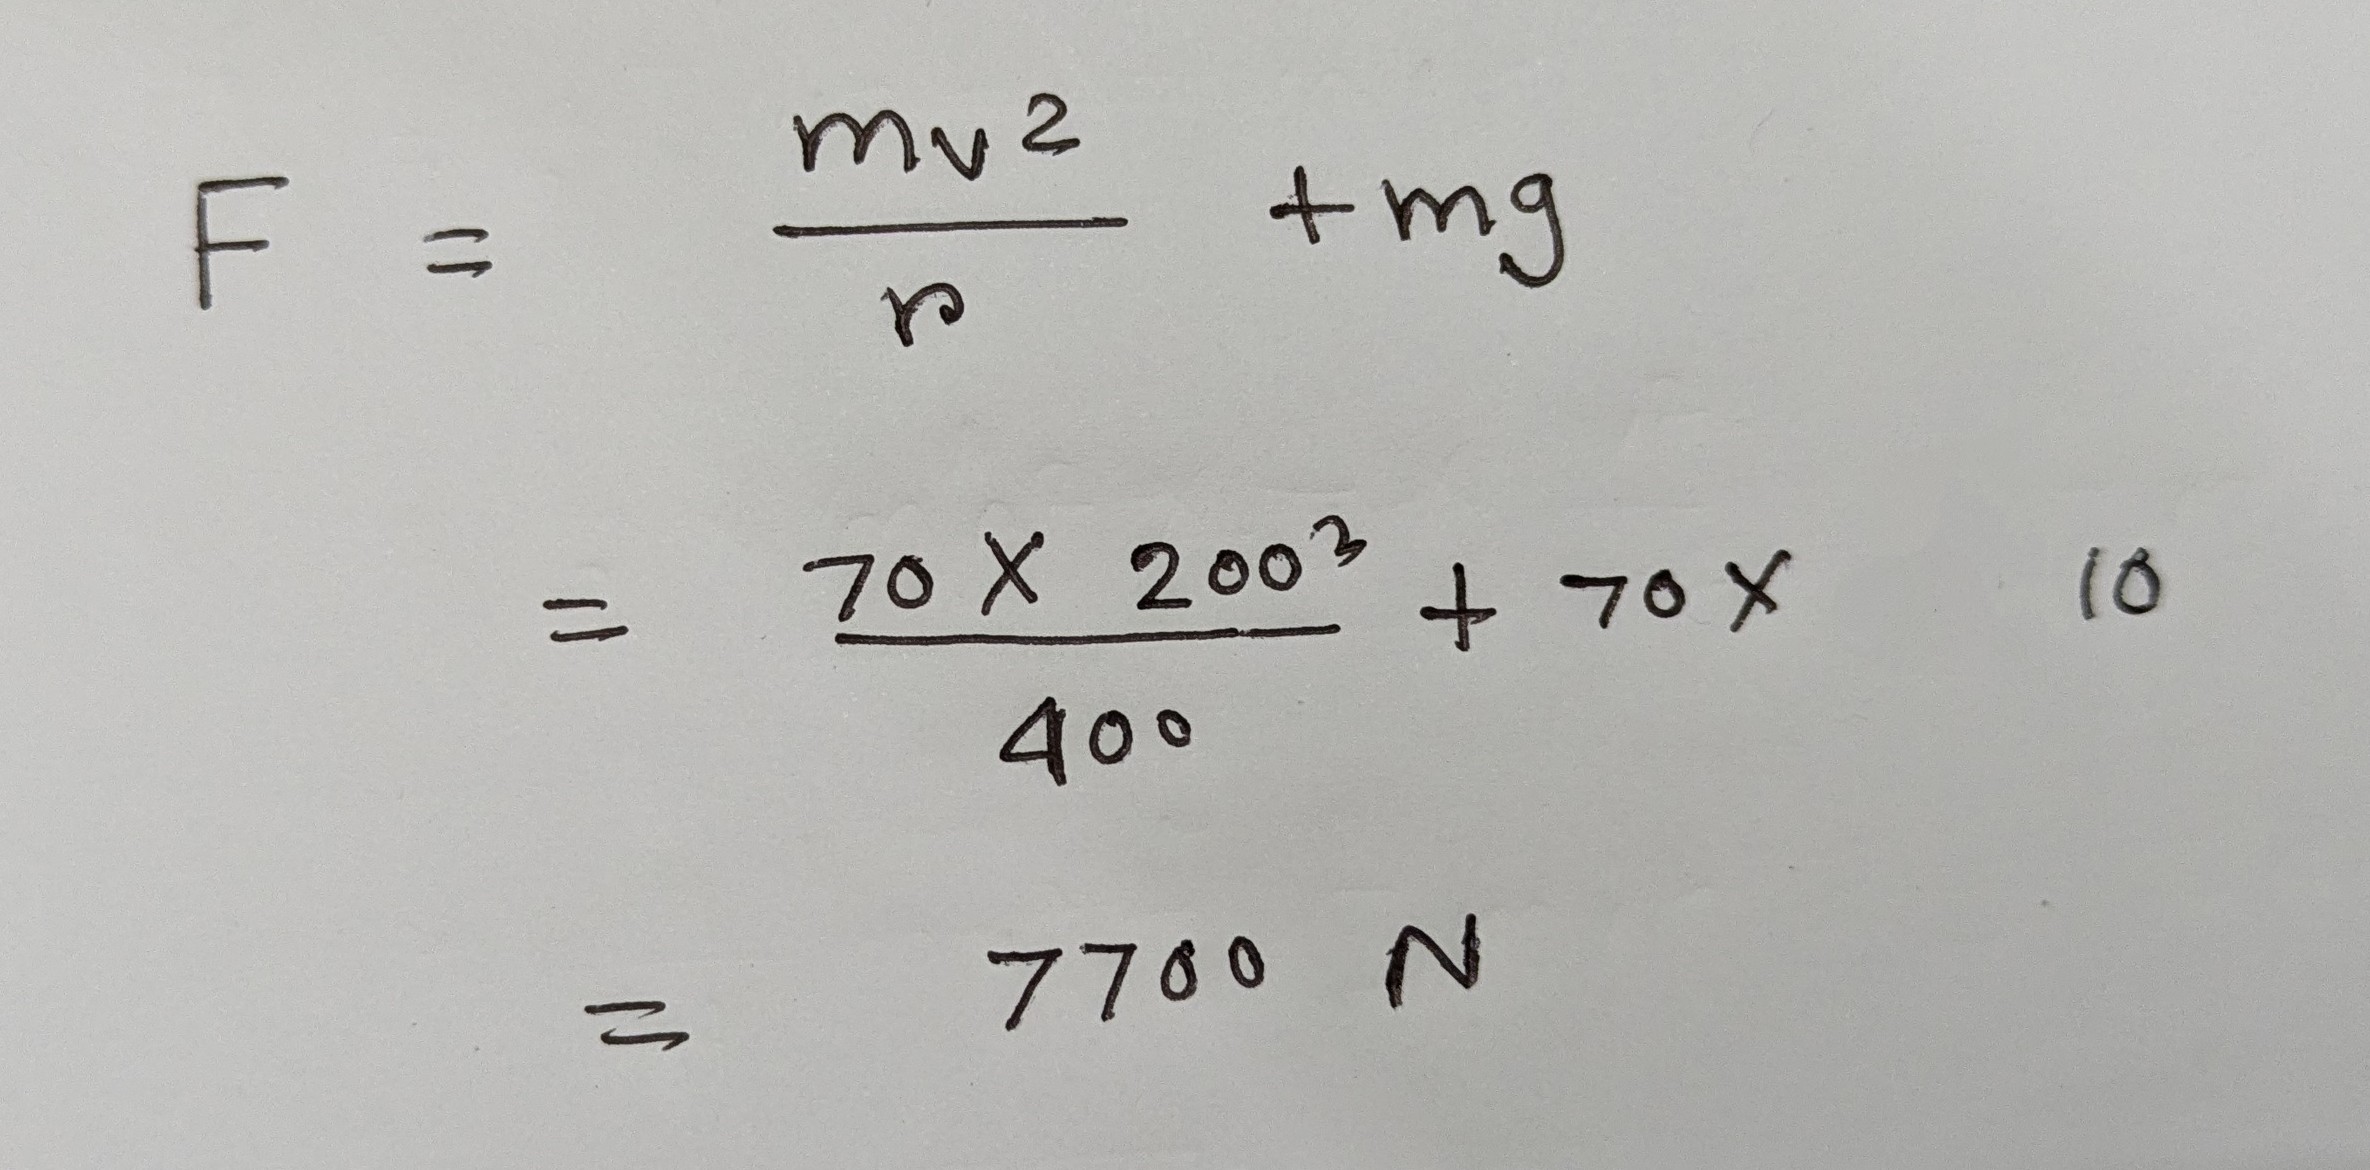 F = mv²/r + mg
= 70 X 200³/400 + 70 X 10
= 7700 N